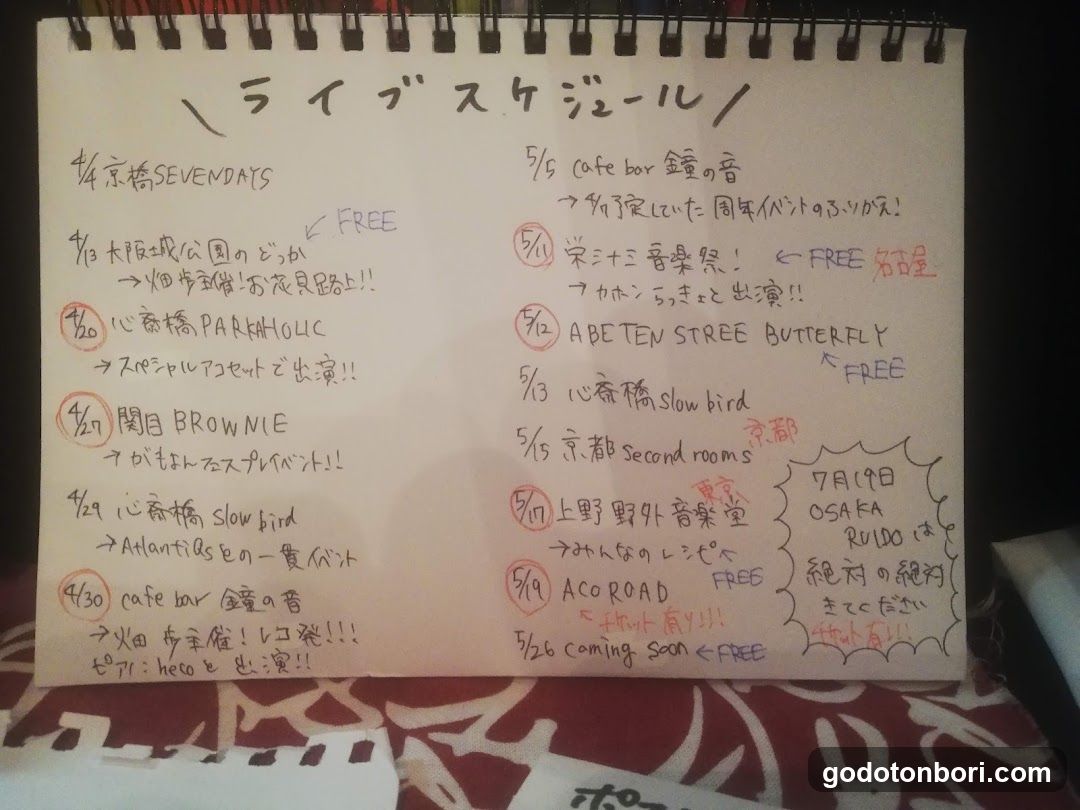 \ ライブスケジュール /
4/4 京橋SEVENDAYS
4/13 大阪城公園のどっか ← FREE
→畑歩主催!お花見路上!!
4/20 心斎橋PARKAHOLIC
→スペシャルアコセットで出演!!
4/27 関目BROWNIE
→がもよんフェスプレイベント!!
4/29 心斎橋 slow bird
→AtlantiQsとの一貫イベント
4/30 cafe bar 鐘の音
→畑歩主催!レコ発!!!
ピアノ:hecoと出演!!
5/5 cafe bar 鐘の音
→4/7予定していた周年イベントのふりかえ!
5/11 栄ミナミ音楽祭! ← FREE 名古屋
→カホンらっきょと出演!!
5/12 ABETEN STREE BUTTERFLY
← FREE
5/13 心斎橋 slow bird
5/15 京都 second rooms 京都
5/17 上野野外音楽堂 東京
→みんなのレシピ ← FREE
5/19 ACOROAD
← チケット有り!!!
5/26 coming soon ← FREE
7月19日
OSAKA
RUIDOは
絶対の絶対
きてください
チケット有り!!
ポス
godotonbori.com